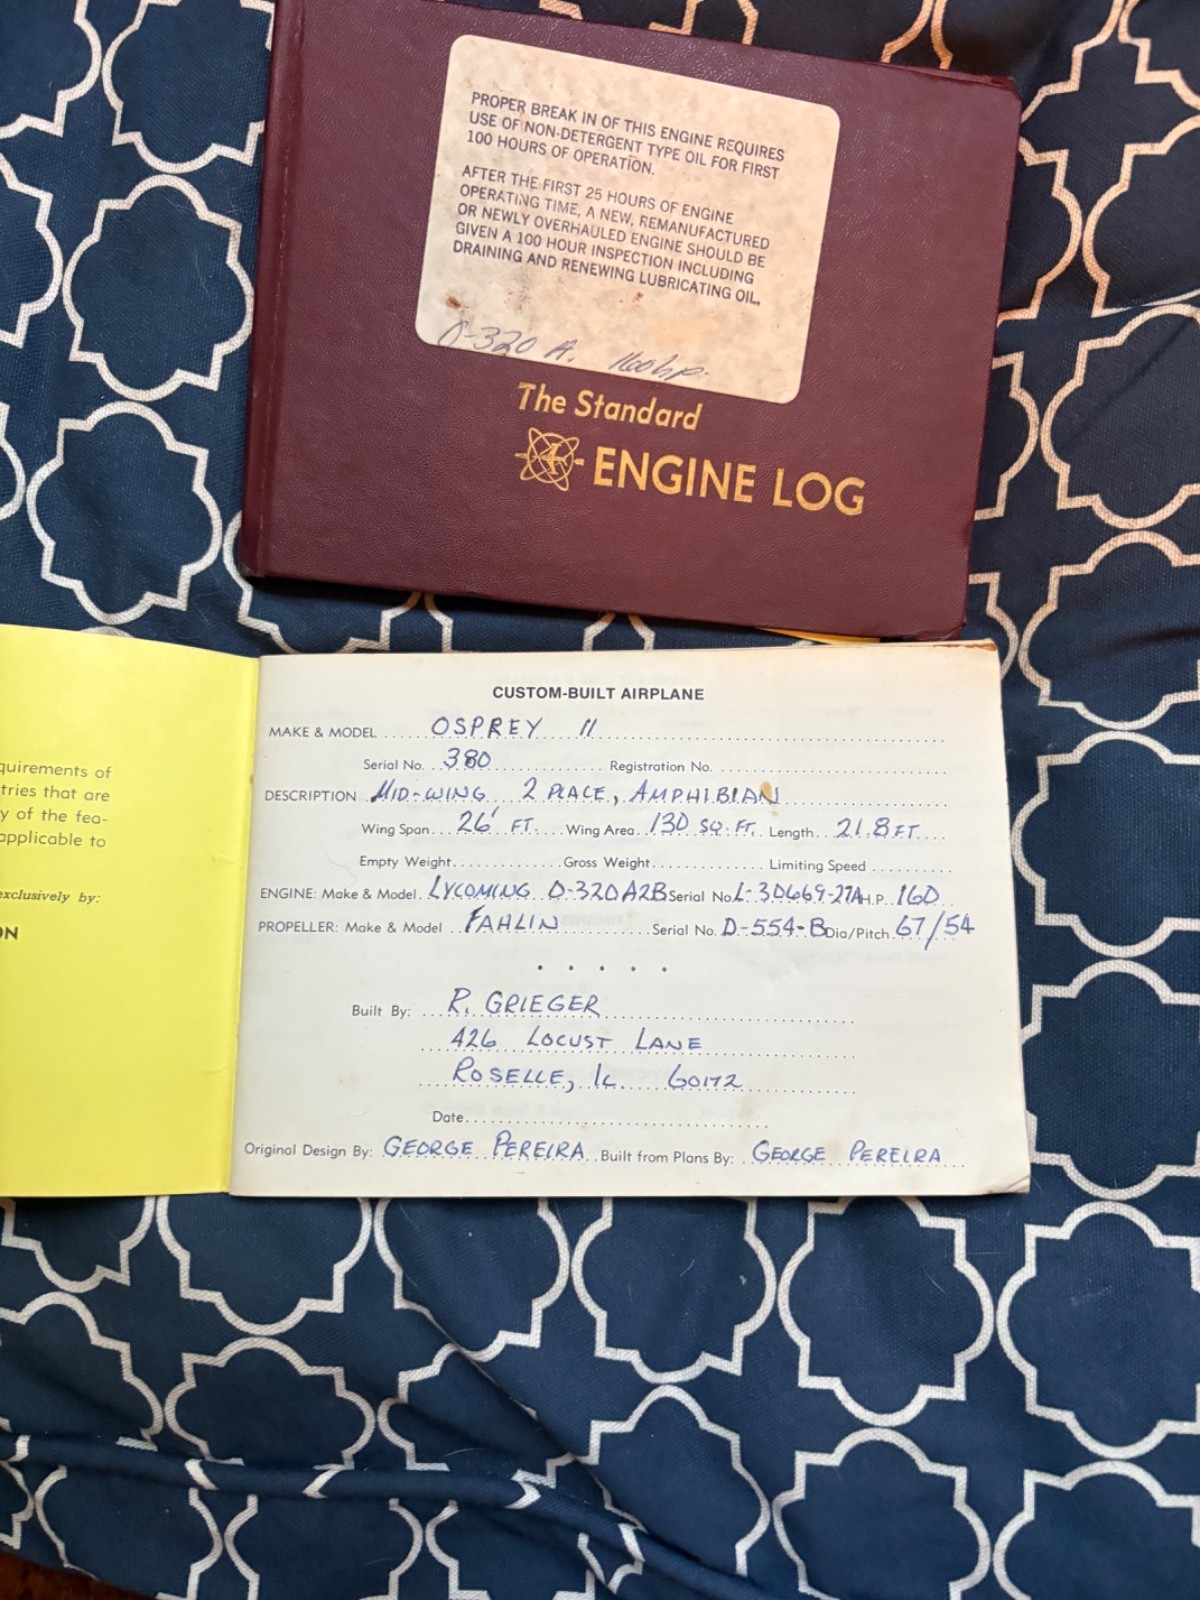 PROPER BREAK IN OF THIS ENGINE REQUIRES
USE OF NON-DETERGENT TYPE OIL FOR FIRST
100 HOURS OF OPERATION.
AFTER THE FIRST 25 HOURS OF ENGINE
OPERATING TIME, A NEW, REMANUFACTURED
OR NEWLY OVERHAULED ENGINE SHOULD BE
GIVEN A 100 HOUR INSPECTION INCLUDING
DRAINING AND RENEWING LUBRICATING OIL.
O-320 A. 160 hp.
The Standard
ENGINE LOG
quirements of
tries that are
y of the fea-
applicable to
exclusively by:
ON
CUSTOM-BUILT AIRPLANE
MAKE & MODEL OSPREY II
Serial No. 380 Registration No.
DESCRIPTION MID-WING 2 PLACE, AMPHIBIAN
Wing Span 26' FT. Wing Area 130 SQ. FT. Length 21.8 FT
Empty Weight Gross Weight Limiting Speed
ENGINE: Make & Model LYCOMING O-320A2B Serial No L-30669-27A H.P. 160
PROPELLER: Make & Model FAHLIN Serial No. D-554-B Dia/Pitch 67/54
Built By: R. GRIEGER
426 LOCUST LANE
ROSELLE, IL 60172
Date
Original Design By: GEORGE PEREIRA Built from Plans By: GEORGE PEREIRA